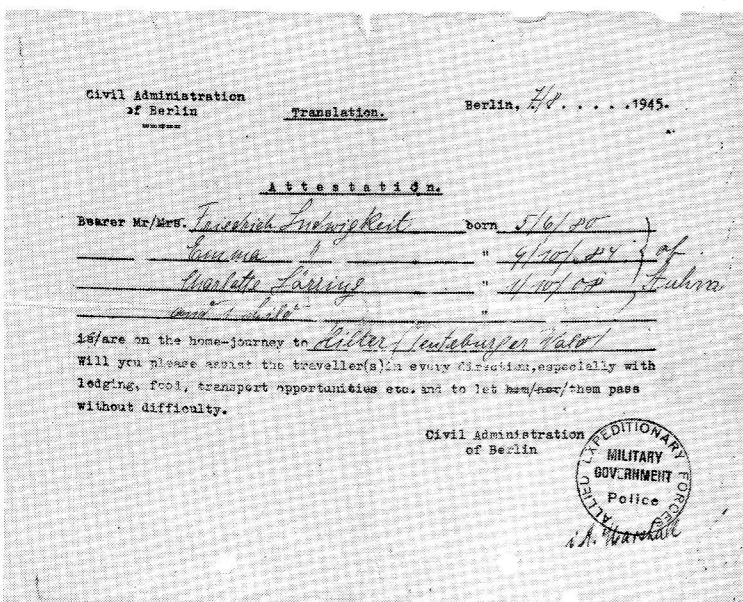 Civil Administration
of Berlin
Translation.
Berlin, 7/8.....1945.
Attestation.
Bearer Mr/Mrs. Friedrich Ludwigkeit born 5/6/80
Emma " " 9/10/84 of
Charlotte " 1/10/08
and 1 child "
is/are on the home-journey to Hilter (Teuteburger Wald)
Will you please assist the traveller(s)in every direction,especially with
lodging, food, transport opportunities etc. and to let him/her/them pass
without difficulty.
Civil Administration
of Berlin
ALLIED EXPEDITIONARY FORCES
MILITARY
GOVERNMENT
Police
i.A. Marshall